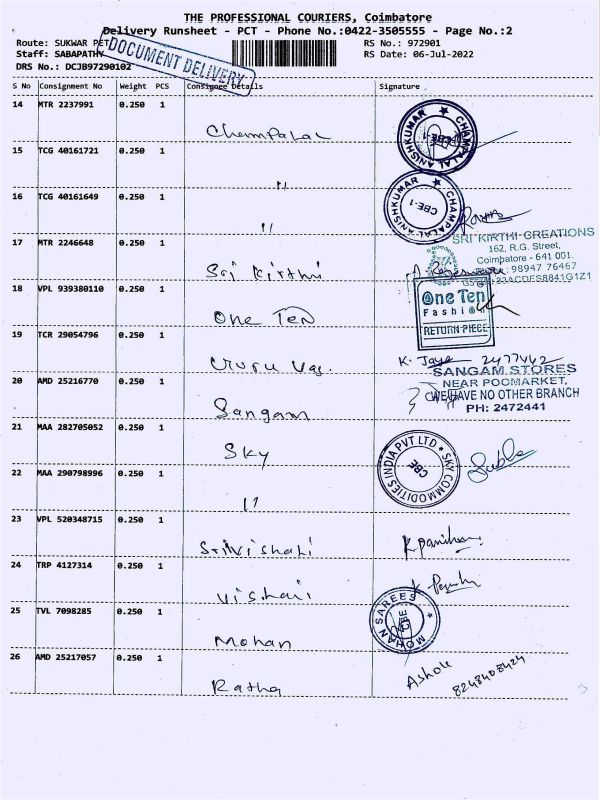 THE PROFESSIONAL COURIERS, Coimbatore
Delivery Runsheet - PCT - Phone No.:0422-3505555 - Page No.:2
Route: SUKWAR PET
RS No.: 972901
Staff: SABAPATHY
RS Date: 06-Jul-2022
DRS No.: DCJB97290102
DOCUMENT DELIVERY
S No Consignment No Weight PCS Consignee Details Signature
14 MTR 2237991 0.250 1
Champalal
CHAMPALAL ANISHKUMAR CBE-1
15 TCG 40161721 0.250 1
"
16 TCG 40161649 0.250 1
"
CHAMPALAL ANISHKUMAR CBE-1
17 MTR 2246648 0.250 1
Sri Kirthi
SRI KIRTHI CREATIONS
162, R.G. Street,
Coimbatore - 641 001.
98947 76467
18 VPL 939380110 0.250 1
One Ten
One Ten
Fashion
RETURN PIECE
19 TCR 29054796 0.250 1
K. Jaya 2477442
20 AMD 25216770 0.250 1
Sangam
SANGAM STORES
NEAR POOMARKET,
WE HAVE NO OTHER BRANCH
PH: 2472441
21 MAA 282705052 0.250 1
Sky
SKY COMMODITIES INDIA PVT LTD CBE
22 MAA 290798996 0.250 1
"
23 VPL 520348715 0.250 1
24 TRP 4127314 0.250 1
25 TVL 7098285 0.250 1
Mohan
MOHAN SAREES
26 AMD 25217057 0.250 1
Ratha
Ashok
8248408424